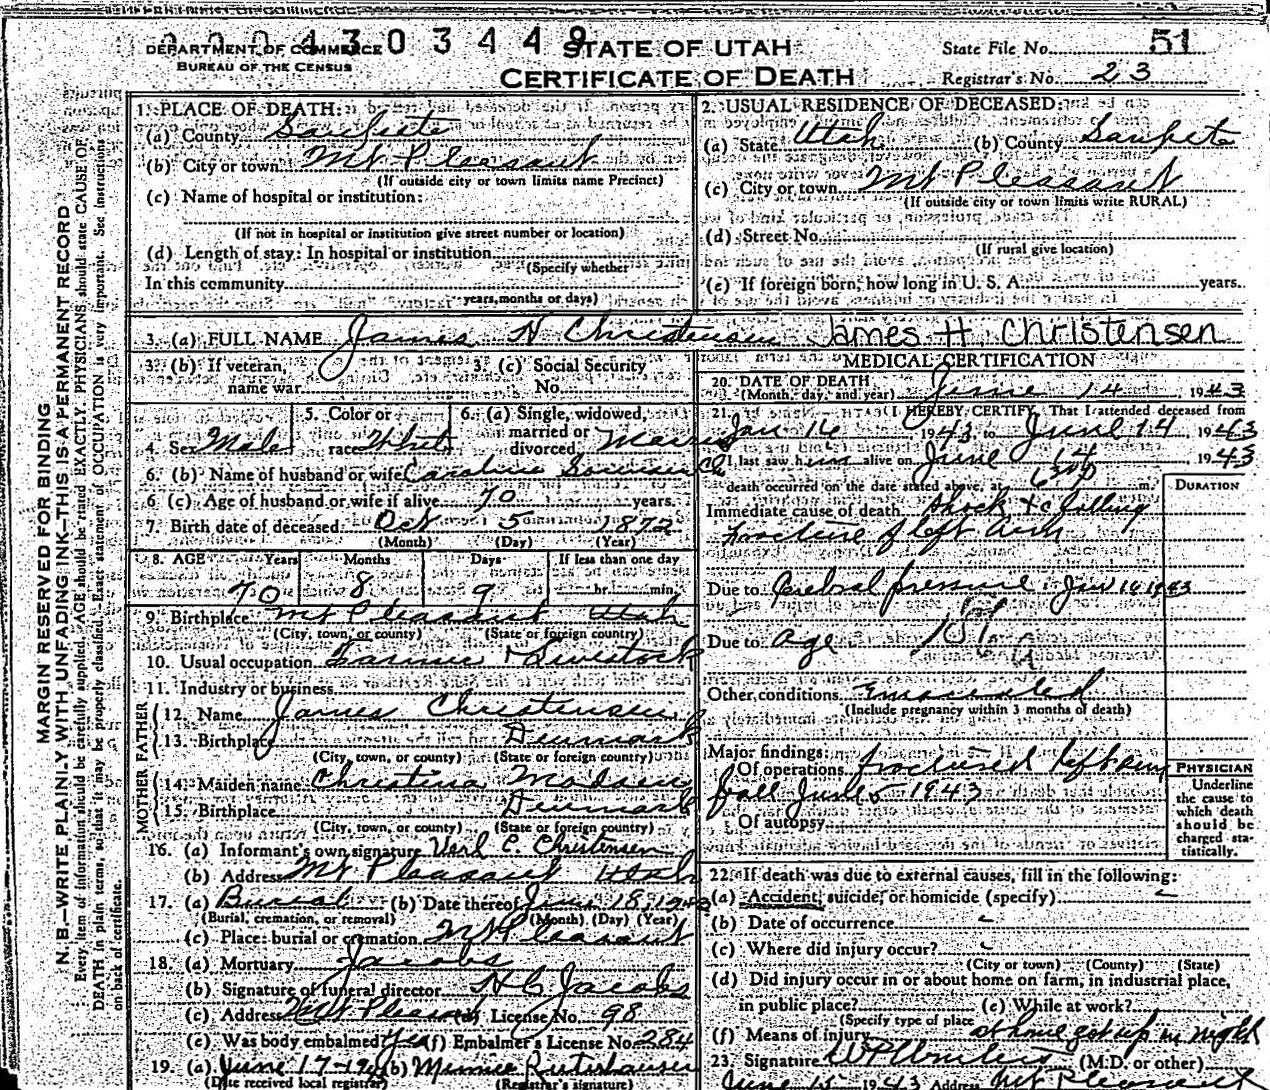 0004303449
DEPARTMENT OF COMMERCE
BUREAU OF THE CENSUS
STATE OF UTAH
CERTIFICATE OF DEATH
State File No. 51
Registrar's No. 23
MARGIN RESERVED FOR BINDING
N. B.—WRITE PLAINLY WITH UNFADING INK—THIS IS A PERMANENT RECORD
Every item of information should be carefully supplied. AGE should be stated EXACTLY. PHYSICIANS should state CAUSE OF
DEATH in plain terms, so that it may be properly classified. Exact statement of OCCUPATION is very important. See instructions
on back of certificate.
1. PLACE OF DEATH:
(a) County Sanpete
(b) City or town Mt Pleasant
(If outside city or town limits name Precinct)
(c) Name of hospital or institution:
(If not in hospital or institution give street number or location)
(d) Length of stay: In hospital or institution
(Specify whether
In this community
years, months or days)
2. USUAL RESIDENCE OF DECEASED:
(a) State Utah (b) County Sanpete
(c) City or town Mt Pleasant
(If outside city or town limits write RURAL)
(d) Street No.
(If rural give location)
(e) If foreign born, how long in U. S. A. years.
3. (a) FULL NAME James H Christensen James H. Christensen
3. (b) If veteran, name war
3. (c) Social Security No.
4. Sex Male
5. Color or race White
6. (a) Single, widowed, married or divorced Married
6. (b) Name of husband or wife Caroline Sorensen
6 (c) Age of husband or wife if alive 70 years.
7. Birth date of deceased Oct 5 1872
(Month) (Day) (Year)
8. AGE Years Months Days If less than one day
70 8 9 hr. min.
9. Birthplace Mt Pleasant Utah
(City, town, or county) (State or foreign country)
10. Usual occupation Farmer & Livestock
11. Industry or business
FATHER
12. Name James Christensen
13. Birthplace Denmark
(City, town, or county) (State or foreign country)
MOTHER
14. Maiden name Christina Madsen
15. Birthplace Denmark
(City, town, or county) (State or foreign country)
16. (a) Informant's own signature Verl C. Christensen
(b) Address Mt Pleasant Utah
17. (a) Burial (b) Date thereof June 18, 1943
(Burial, cremation, or removal) (Month) (Day) (Year)
(c) Place: burial or cremation Mt Pleasant
18. (a) Mortuary Jacobs
(b) Signature of funeral director H C Jacobs
(c) Address Mt Pleasant (d) License No. 98
(e) Was body embalmed Yes (f) Embalmer's License No. 284
19. (a) June 17-1943 (b) Minnie
(Date received local registrar) (Registrar's signature)
MEDICAL CERTIFICATION
20. DATE OF DEATH June 14, 1943
(Month, day, and year)
21. I HEREBY CERTIFY, That I attended deceased from
Jan 16 1943, to June 14 1943
I last saw him alive on June 14 1943
death occurred on the date stated above, at m.
Immediate cause of death Shock & falling
Fracture of left arm
DURATION
Due to Cerebral pressure Jan 16 1943
Due to age
Other conditions Emaciated
(Include pregnancy within 3 months of death)
Major findings:
Of operations fractured left arm
fall June 5 1943
Of autopsy
PHYSICIAN
Underline
the cause to
which death
should be
charged sta-
tistically.
22. If death was due to external causes, fill in the following:
(a) Accident, suicide, or homicide (specify) -
(b) Date of occurrence -
(c) Where did injury occur? -
(City or town) (County) (State)
(d) Did injury occur in or about home on farm, in industrial place,
in public place? (e) While at work?
(Specify type of place
(f) Means of injury at home got up in night
23. Signature (M.D. or other)
June 15 1943 Address Mt Pleasant